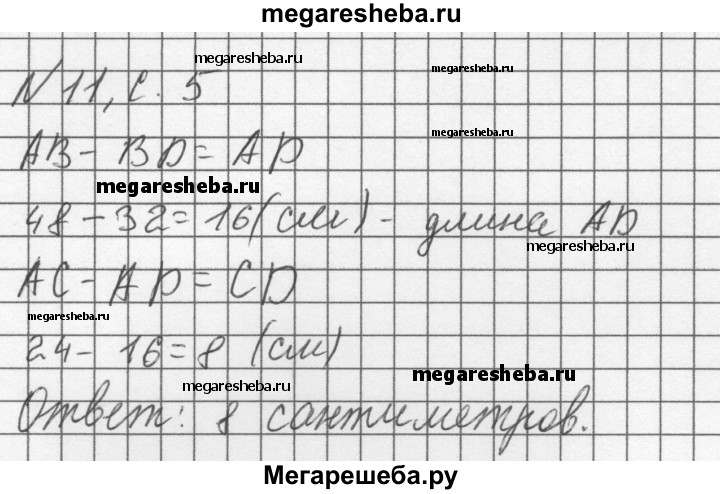 megaresheba.ru
megaresheba.ru megaresheba.ru
N 11, с. 5 megaresheba.ru
megaresheba.ru
AB - BD = AD
megaresheba.ru
48 - 32 = 16 (см) - длина AD
megaresheba.ru
AC - AD = CD
megaresheba.ru
24 - 16 = 8 (см)
megaresheba.ru megaresheba.ru
Ответ: 8 сантиметров.
Мегарешеба.ру